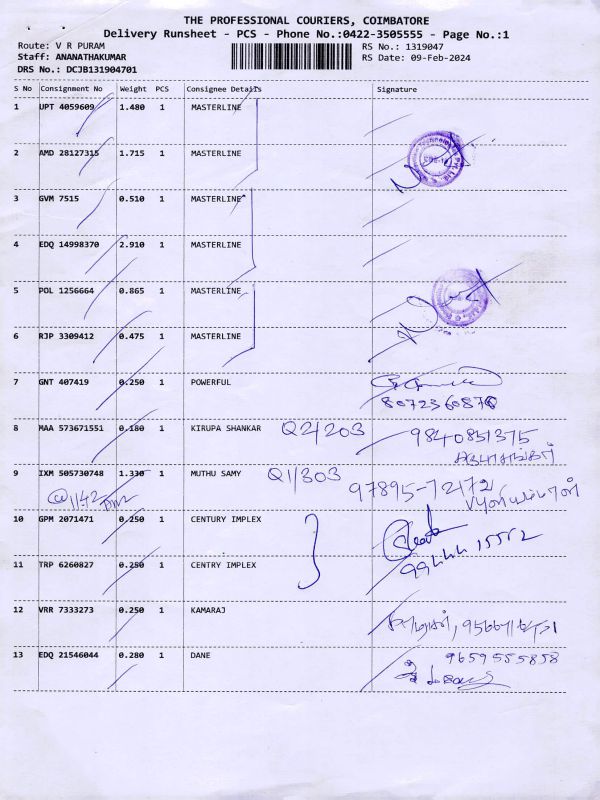 THE PROFESSIONAL COURIERS, COIMBATORE
Delivery Runsheet - PCS - Phone No.:0422-3505555 - Page No.:1
Route: V R PURAM RS No.: 1319047
Staff: ANANATHAKUMAR RS Date: 09-Feb-2024
DRS No.: DCJB131904701
S No Consignment No Weight PCS Consignee Details Signature
1 UPT 4059609 1.480 1 MASTERLINE
2 AMD 28127315 1.715 1 MASTERLINE
3 GVM 7515 0.510 1 MASTERLINE
4 EDQ 14998370 2.910 1 MASTERLINE
5 POL 1256664 0.865 1 MASTERLINE
6 RJP 3309412 0.475 1 MASTERLINE
7 GNT 407419 0.250 1 POWERFUL
8 MAA 573671551 0.180 1 KIRUPA SHANKAR Q2/203 9840851375
9 IXM 505730748 1.330 1 MUTHU SAMY Q1/303 97895-72172
@11:42
10 GPM 2071471 0.250 1 CENTURY IMPLEX
11 TRP 6260827 0.250 1 CENTRY IMPLEX
12 VRR 7333273 0.250 1 KAMARAJ
13 EDQ 21546044 0.280 1 DANE 9659555858